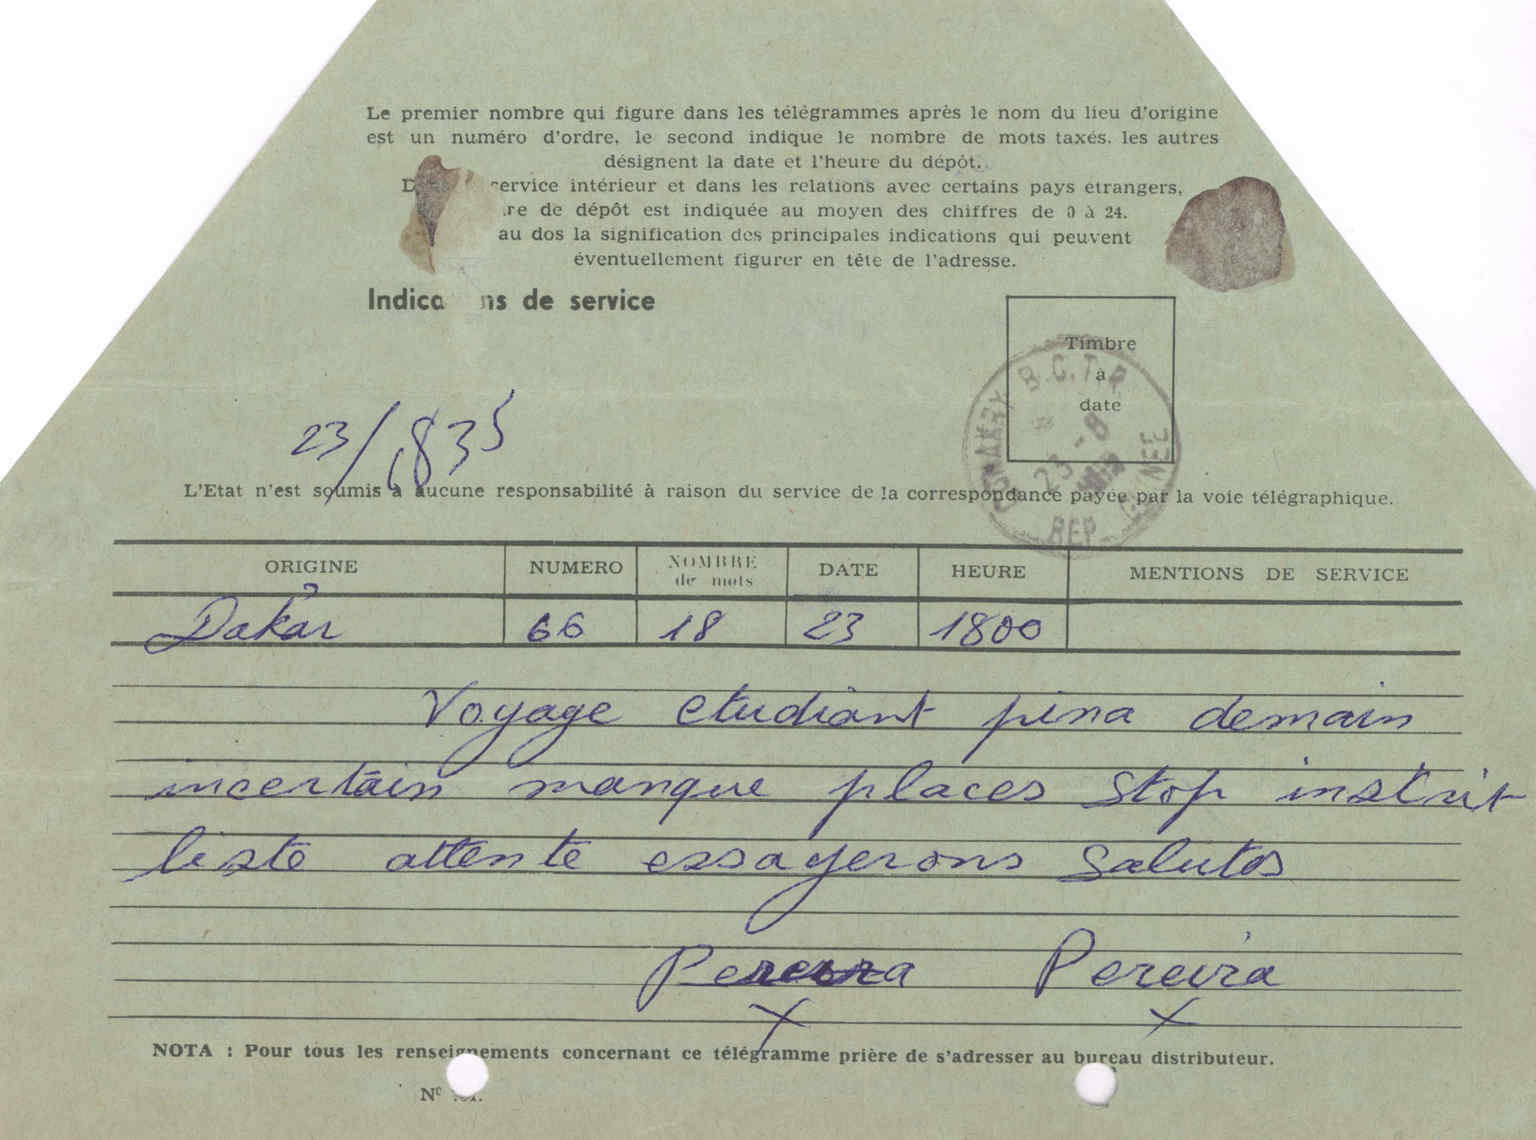 Le premier nombre qui figure dans les télégrammes après le nom du lieu d'origine
est un numéro d'ordre, le second indique le nombre de mots taxés. les autres
désignent la date et l'heure du dépôt.
service intérieur et dans les relations avec certains pays étrangers,
re de dépôt est indiquée au moyen des chiffres de 0 à 24.
au dos la signification des principales indications qui peuvent
éventuellement figurer en tête de l'adresse.
Indica ns de service
Timbre
à
date
CONAKRY B.C.T.R
23 -8
REP. GUINEE
23/1835
L'Etat n'est soumis à aucune responsabilité à raison du service de la correspondance payée par la voie télégraphique.
ORIGINE NUMERO NOMBRE de mots DATE HEURE MENTIONS DE SERVICE
Dakar 66 18 23 1800
Voyage etudiant pina demain
incertain manque places stop instrit
liste attente essayerons salutos
Pereira
NOTA : Pour tous les renseignements concernant ce télégramme prière de s'adresser au bureau distributeur.
Nº